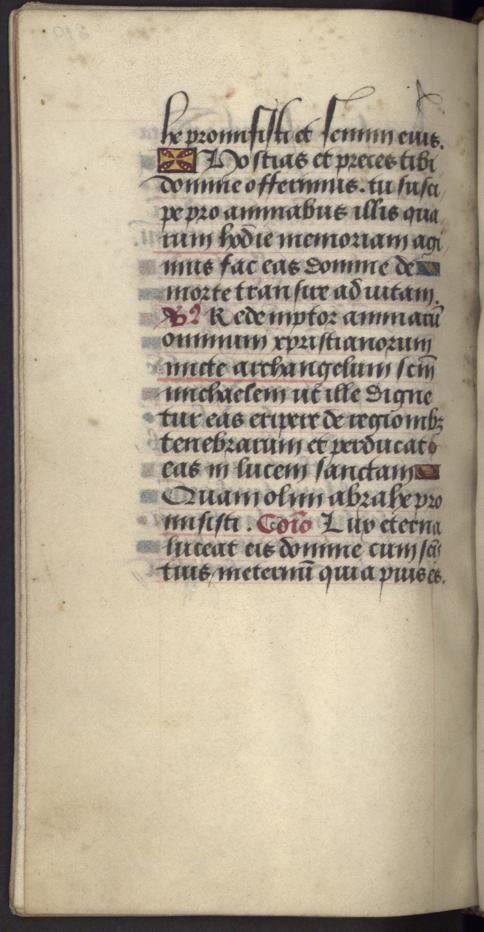 he promisisti et semini eius.
Hostias et preces tibi
domine offerimus. tu susci
pe pro animabus illis qua
rum hodie memoriam agi
mus fac eas domine de
morte transire ad vitam.
R̃ Redemptor animarū
omnium xpristianorum
micte archangelum scm̄
michaelem ut ille digne
tur eas eripere de regionibꝫ
tenebrarum et perducat
eas in lucem sanctam
Quam olim abrahe pro
misisti. Coīo Lux eterna
luceat eis domine cum scīs
tuis ineternū quia pius es.